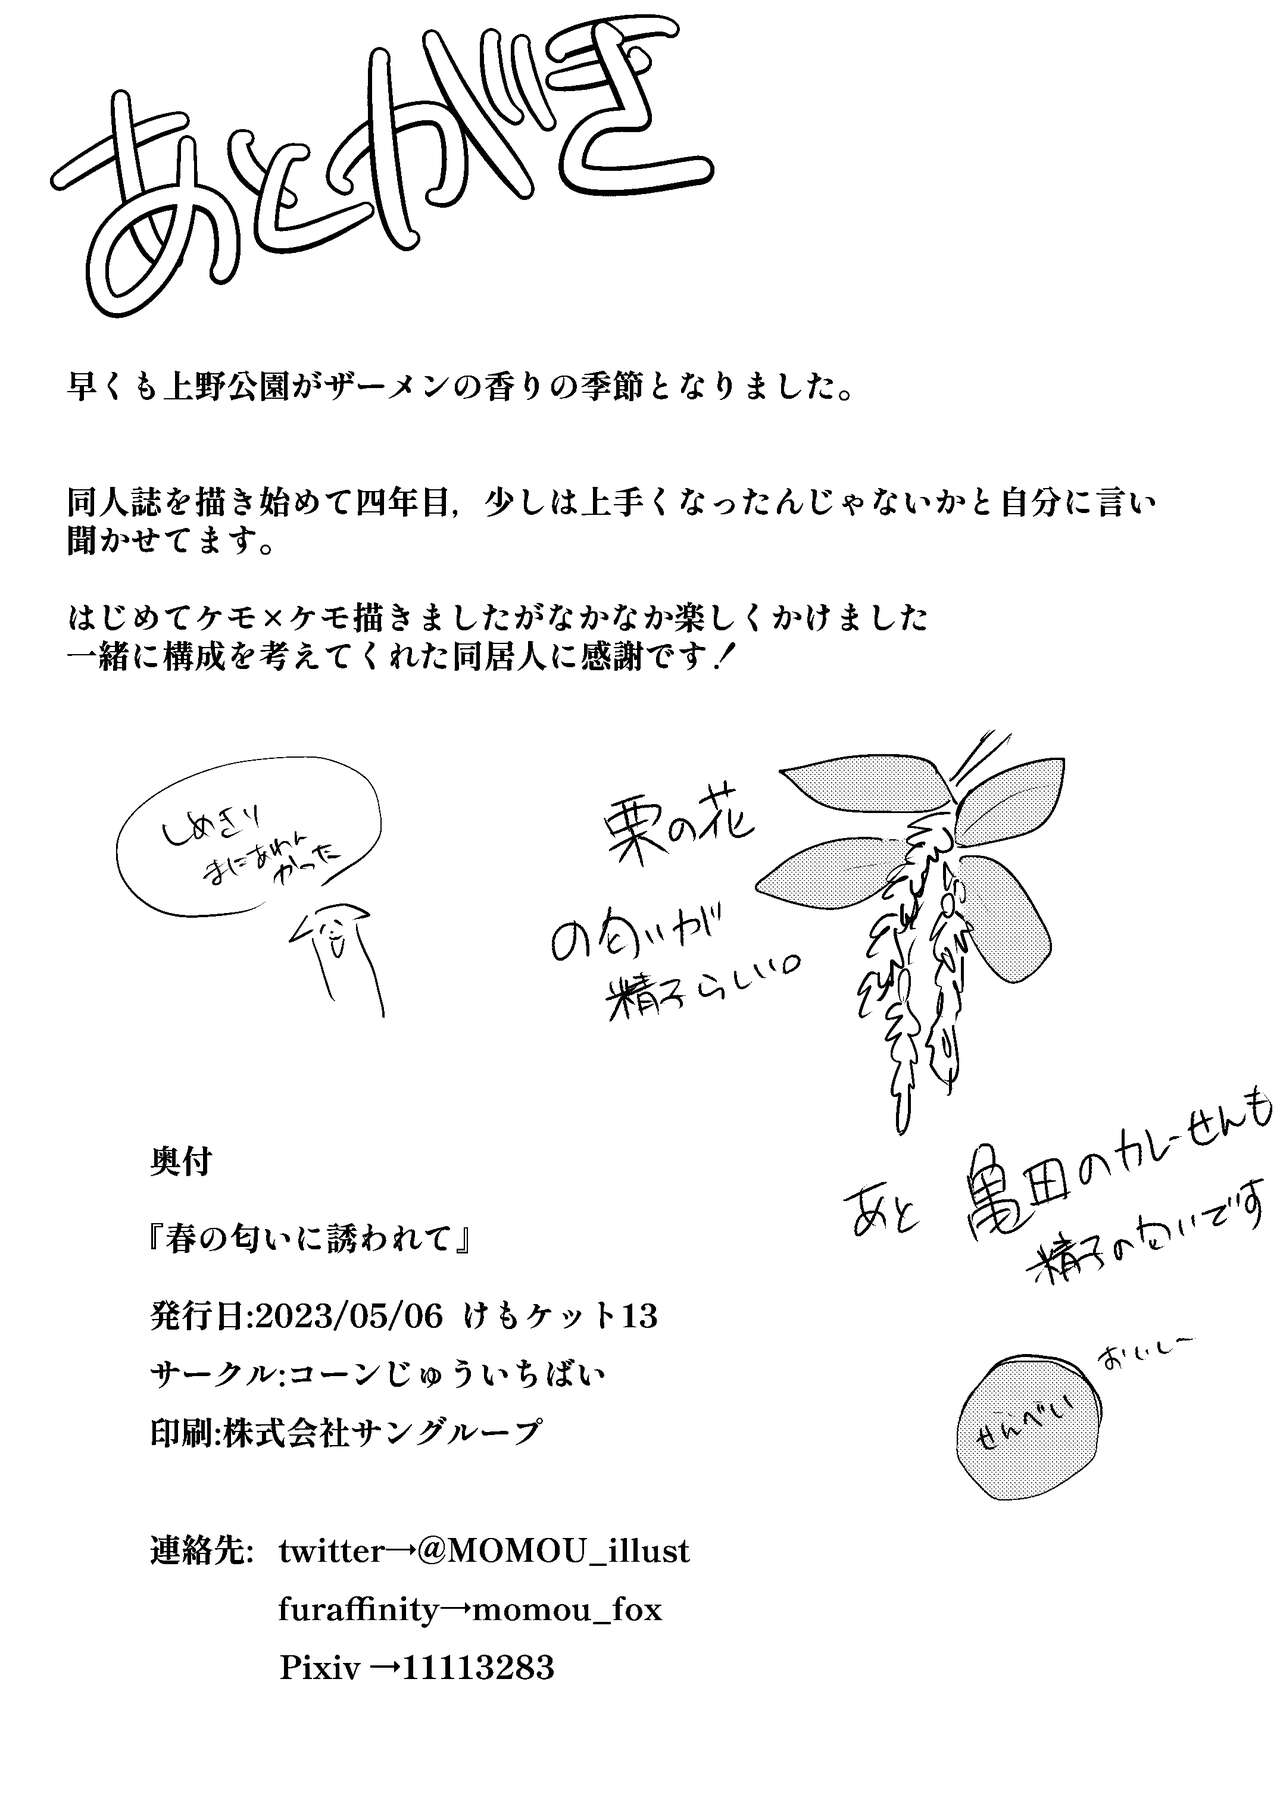 あとがき
早くも上野公園がザーメンの香りの季節となりました。
同人誌を描き始めて四年目，少しは上手くなったんじゃないかと自分に言い
聞かせてます。
はじめてケモ×ケモ描きましたがなかなか楽しくかけました
一緒に構成を考えてくれた同居人に感謝です！
しめきり
まにあわん
かった
栗の花
の匂いが
精子らしい。
あと 亀田のカレーせんも
精子の匂いです
おいし～
せんべい
奥付
『春の匂いに誘われて』
発行日:2023/05/06 けもケット13
サークル:コーンじゅういちばい
印刷:株式会社サングループ
連絡先: twitter→@MOMOU_illust
furaffinity→momou_fox
Pixiv →11113283